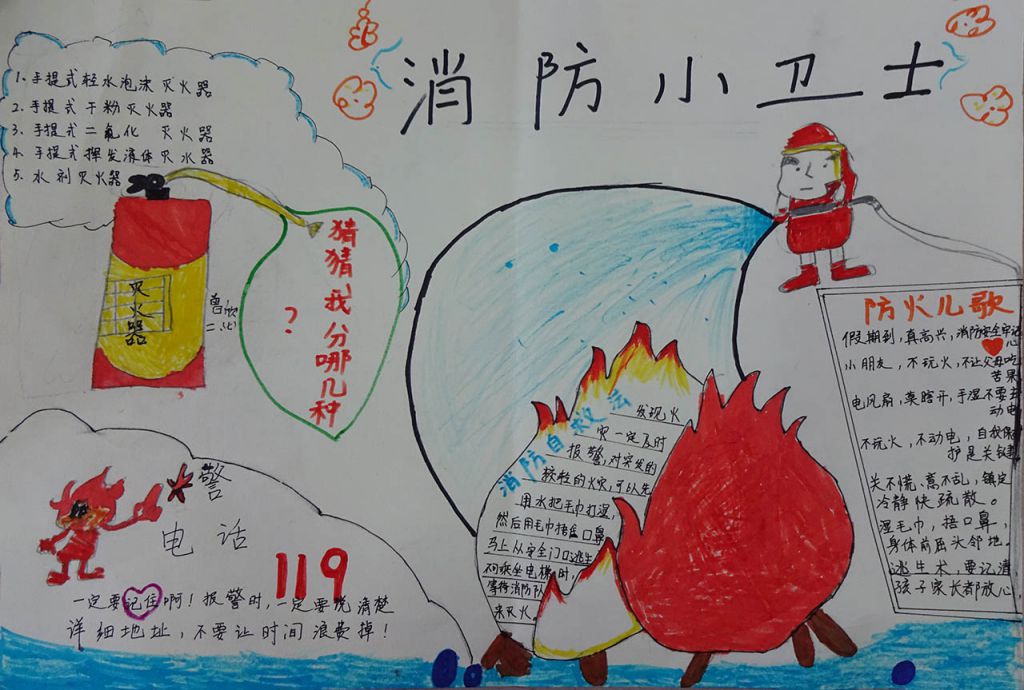 消防小卫士
1. 手提式轻水泡沫灭火器
2. 手提式干粉灭火器
3. 手提式二氧化 灭火器
4. 手提式挥发液体灭火器
5. 水剂灭火器
灭火器
猜猜我分哪几种
?
警
电话
119
一定要记住啊!报警时,一定要说清楚
详细地址,不要让时间浪费掉!
消防自救法
发现火
灾一定及时
报警,对突发的
较轻的火灾,可以先
用水把毛巾打湿,
然后用毛巾捂盖口鼻
马上从安全门口逃生
不可乘坐电梯时,
等待消防队
来灭火.
防火儿歌
假期到,真高兴,消防安全牢记
心
小朋友,不玩火,不让父母吃
苦果
电风扇,莫瞎开,手湿不要去
动电
不玩火,不动电,自我保
护是关键
关不慌,离不乱,镇定
冷静快疏散。
湿毛巾,捂口鼻,
身体前屈头邻地.
逃生术,要记清
孩子家长都放心,